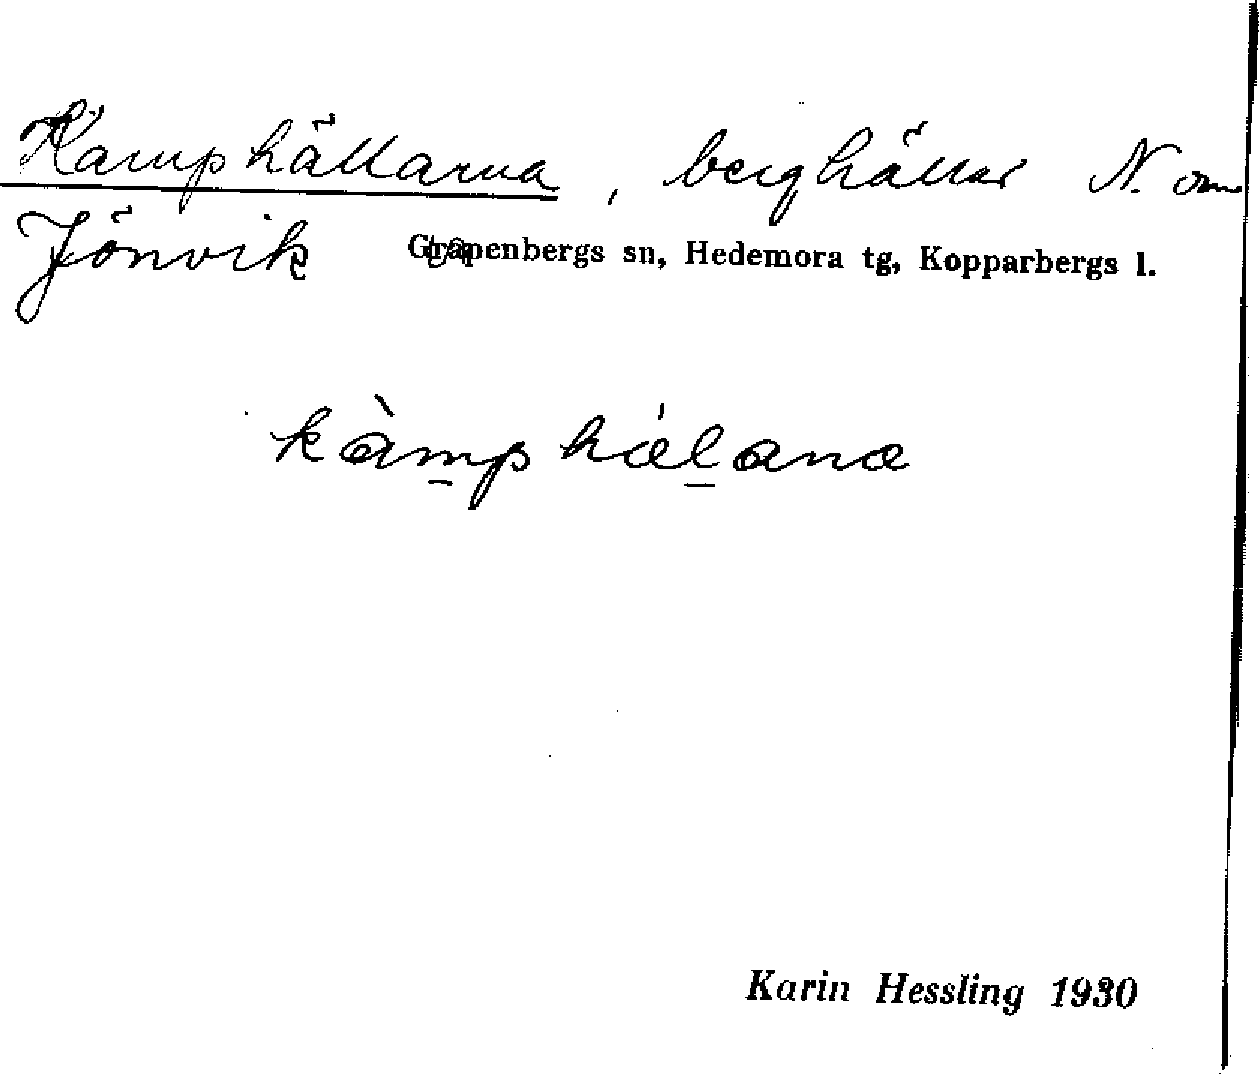 Kamphällarna, berghällar N. om
Jönvik Grapenbergs sn, Hedemora tg, Kopparbergs l.
kàmphælana
Karin Hessling 1930